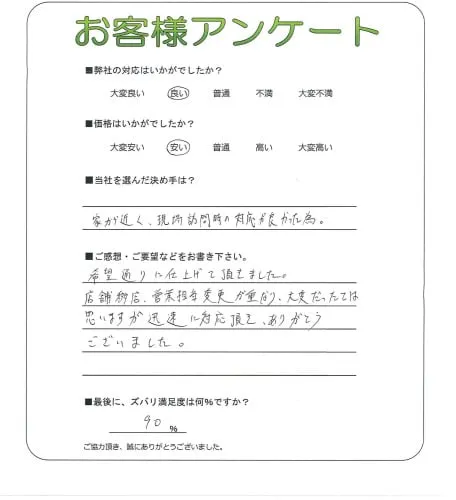 お客様アンケート
■弊社の対応はいかがでしたか?
大変良い 良い 普通 不満 大変不満
■価格はいかがでしたか?
大変安い 安い 普通 高い 大変高い
■当社を選んだ決め手は?
家が近く、現場訪問時の対応が良かった為。
■ご感想・ご要望などをお書き下さい。
希望通りに仕上げて頂きました。
店舗移店、営業担当変更が重なり、大変だったでは
思いますが迅速に対応頂き、ありがとう
ございました。
■最後に、ズバリ満足度は何%ですか?
90 %
ご協力頂き、誠にありがとうございました。